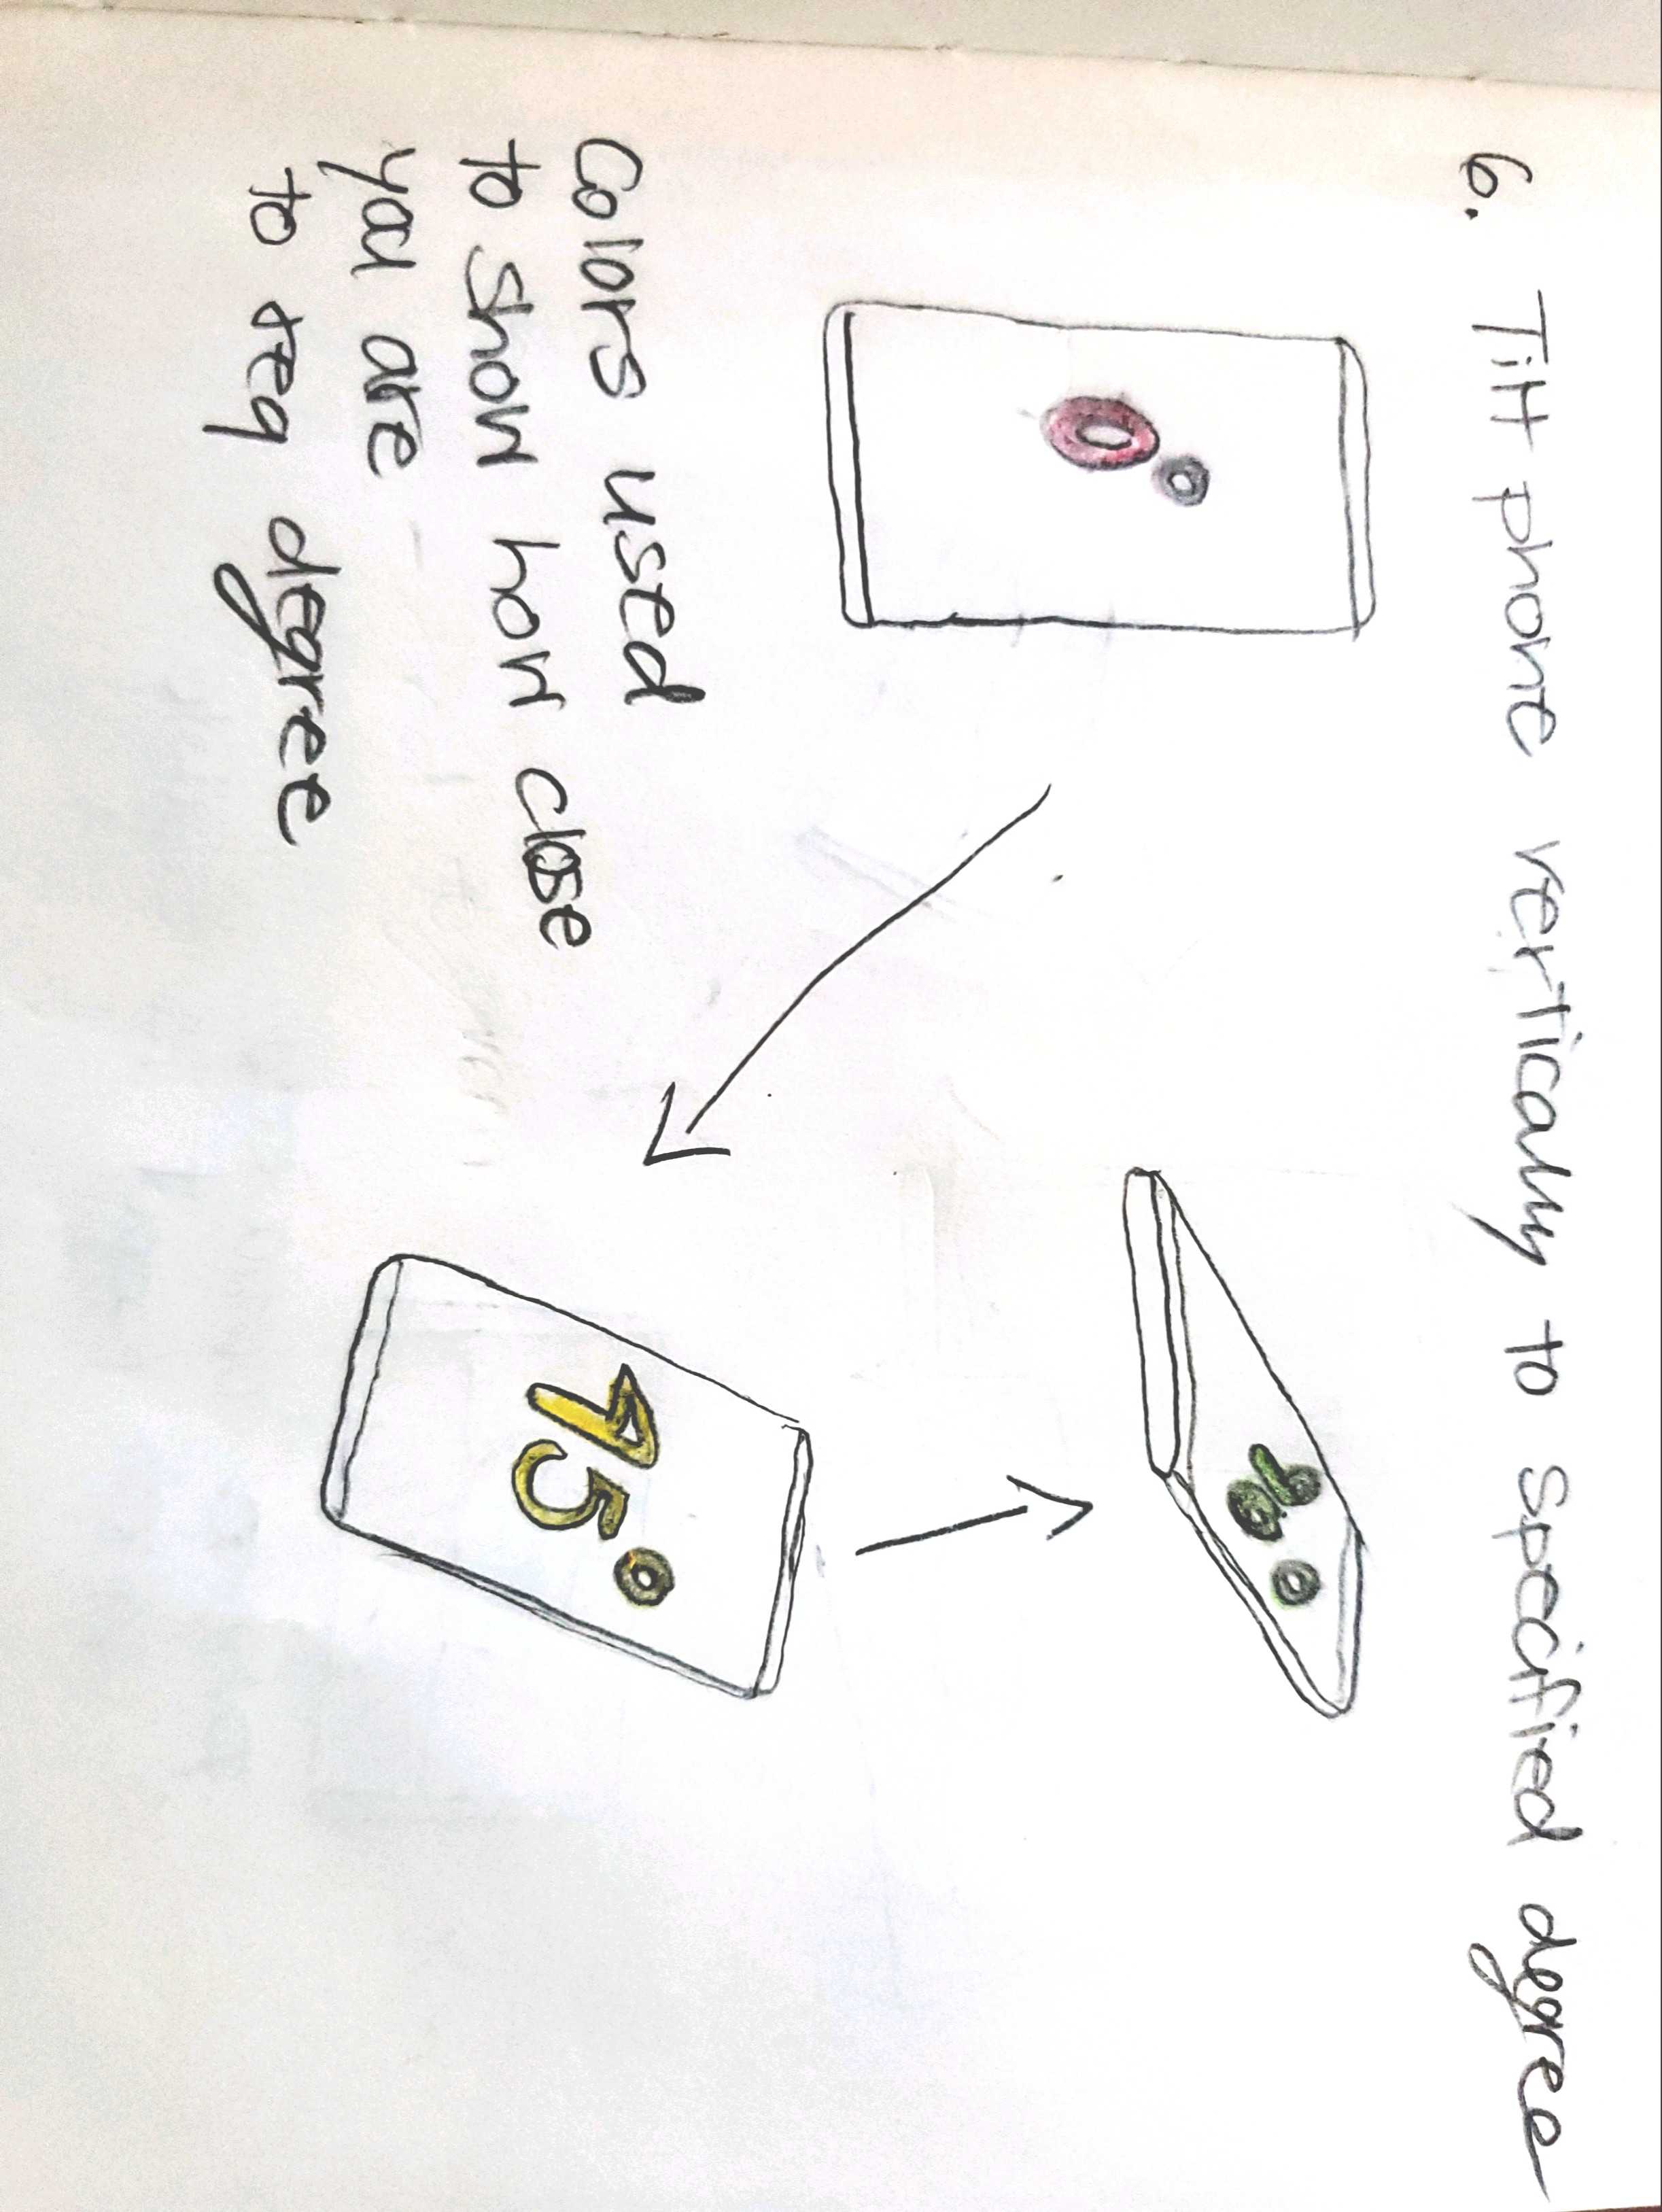 6. Tilt phone vertically to specified degree
0°
90°
45°
Colors used
to show how close
you are
to req degree